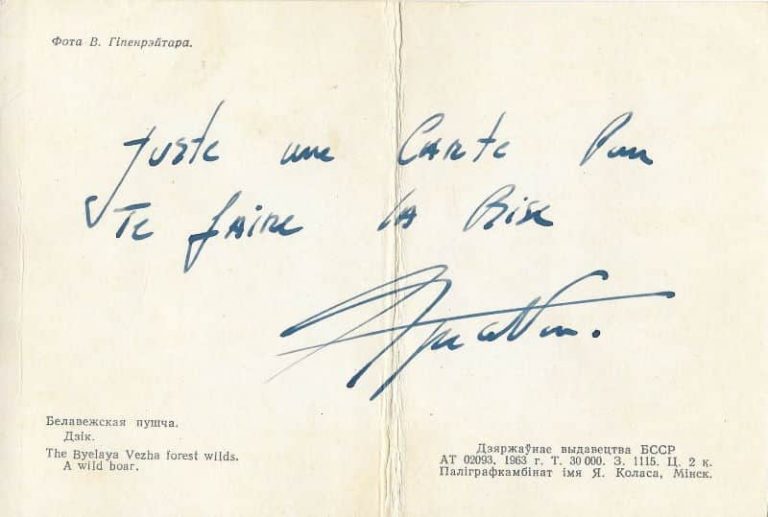 Фота В. Гіпенрэйтара.
Juste une Carte Pour
Te faire la Bise
Белавежская пушча.
Дзік.
The Byelaya Vezha forest wilds.
A wild boar.
Дзяржаўнае выдавецтва БССР
АТ 02093. 1963 г. Т. 30 000. З. 1115. Ц. 2 к.
Паліграфкамбінат імя Я. Коласа, Мінск.